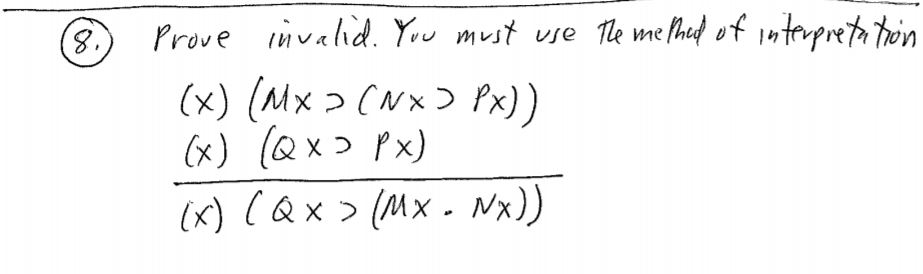 8. Prove invalid. You must use the method of interpretation
(x) (Mx ⊃ (Nx ⊃ Px))
(x) (Qx ⊃ Px)
(x) (Qx ⊃ (Mx . Nx))